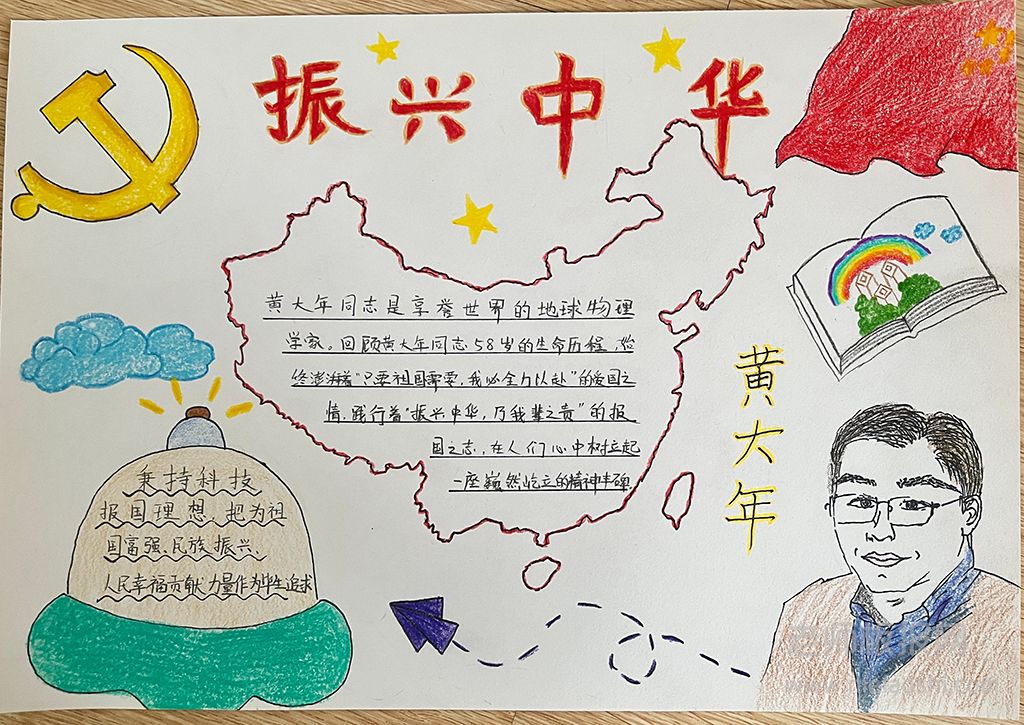 振兴中华
黄大年同志是享誉世界的地球物理
学家。回顾黄大年同志58岁的生命历程,始
终澎湃着"只要祖国需要,我必全力以赴"的爱国之
情,践行着"振兴中华,乃我辈之责"的报
国之志,在人们心中树立起
一座巍然屹立的精神丰碑.
黄大年
秉持科技
报国理想、把为祖
国富强、民族振兴、
人民幸福贡献力量作为毕生追求